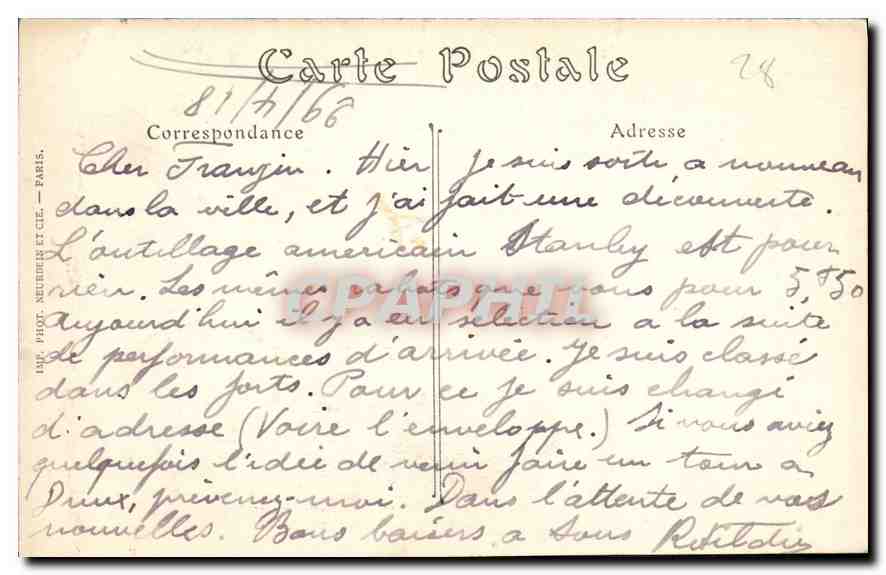 Carte Postale
28
18/4/66
Correspondance
Adresse
IMP. PHOT. NEURDEIN ET CIE. — PARIS.
Cher Franzin. Hier je suis sorti a nouveau
dans la ville, et j'ai fait une découverte.
L'outillage americain Stanley est pour
rien. Les mêmes rabots que vous pour 5,$50
Aujourd'hui il y a eu sélection a la suite
de performances d'arrivée. Je suis classé
dans les forts. Pour ce je suis changé
d'adresse (Voire l'enveloppe.) Si vous aviez
quelquefois l'idée de venir faire un tour a
Dreux, prévenez-moi. Dans l'attente de vos
nouvelles. Bons baisers a tous
CPAPHIL